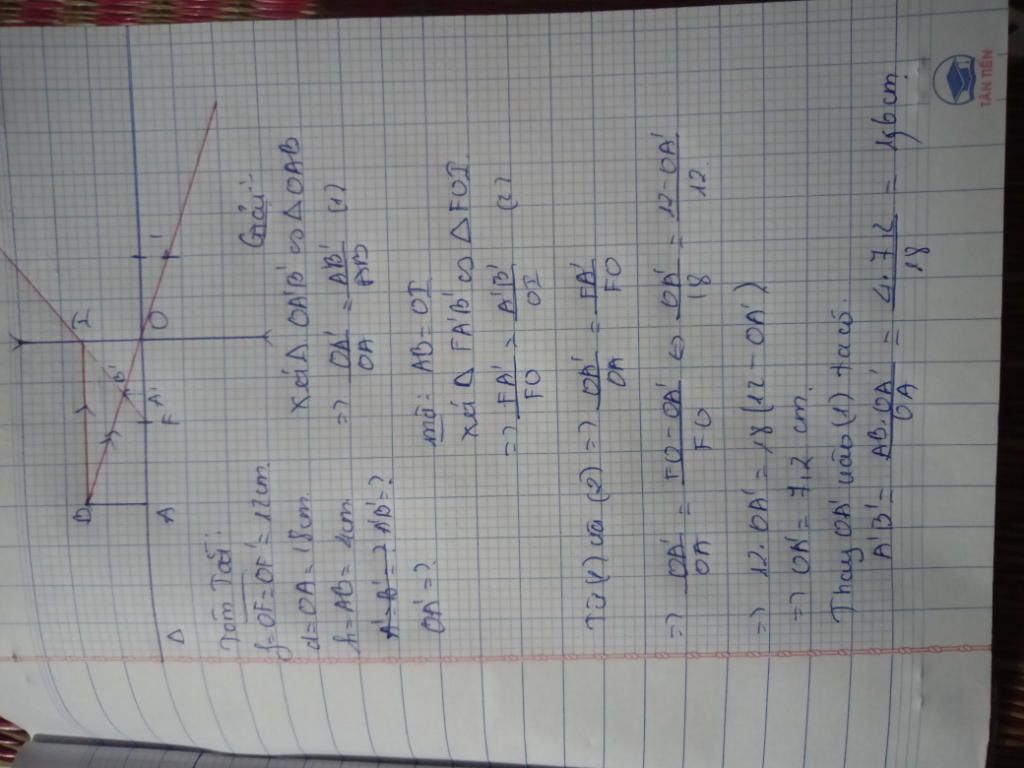 B
I
B'
F
A'
O
A
Δ
Tóm Tắt:
f=OF=OF'=12cm
d=OA=18cm
h=AB=4cm
A'B'=?
OA'=?
Giải:
Xét Δ OA'B' ∽ Δ OAB
=> OA'/OA = A'B'/AB (1)
mà: AB=OI
Xét Δ FA'B' ∽ Δ FOI
=> FA'/FO = A'B'/OI (2)
Từ (1) và (2) => OA'/OA = FA'/FO
=> OA'/OA = FO-OA'/FO <=> OA'/18 = 12-OA'/12
=> 12.OA' = 18(12-OA')
=> OA' = 7,2 cm.
Thay OA' vào (1) ta có.
A'B' = AB.OA'/OA = 4.7,2/18 = 1,6cm.
TÂN TIẾN